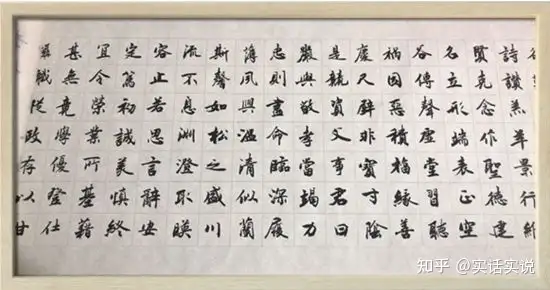 詩讚羔羊景行維
賢克念作聖德建
名立形端表正空
谷傳聲虛堂習聽
禍因惡積福緣善
慶尺璧非寶寸陰
是競資父事君曰
嚴與敬孝當竭力
忠則盡命臨深履
薄夙興溫清似蘭
斯馨如松之盛川
流不息淵澄取暎
容止若思言辭安
定篤初誠美慎終
宜令榮業所基藉
甚無竟學優登仕
攝職從政存以甘
知乎 @实话实说